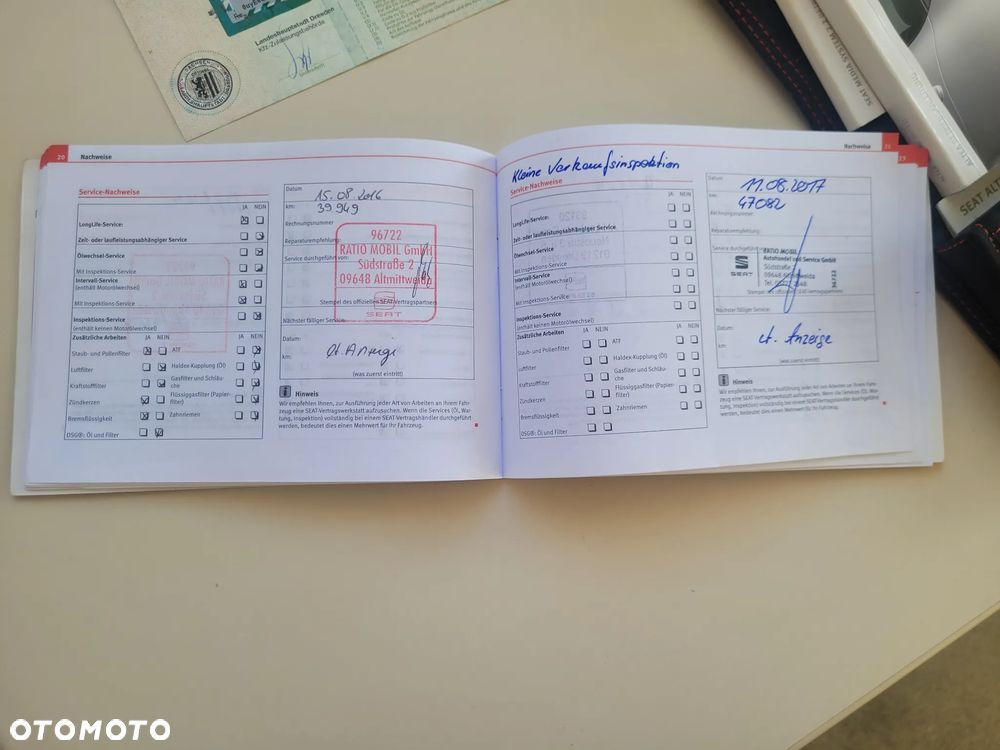 Landeshauptstadt Dresden
Kfz-Zulassungsbehörde
SEAT MEDIA SYSTEM
SEAT
20 Nachweise
Service-Nachweise
JA NEIN
LongLife-Service:
Zeit- oder laufleistungsabhängiger Service
Ölwechsel-Service
Mit Inspektions-Service
Intervall-Service
(enthält Motorölwechsel)
Mit Inspektions-Service
Inspektions-Service
(enthält keinen Motorölwechsel)
Zusätzliche Arbeiten JA NEIN JA NEIN
Staub- und Pollenfilter ATF
Luftfilter Haldex-Kupplung (Öl)
Kraftstofffilter Gasfilter und Schläu-
che
Zündkerzen Flüssiggasfilter (Papier-
filter)
Bremsflüssigkeit Zahnriemen
DSG®: Öl und Filter
Datum
15.08.2016
km:
39949
Rechnungsnummer
Reparaturempfehlung:
Service durchgeführt von:
96722
RATIO MOBIL GmbH
Südstraße 2
09648 Altmittweida
SEAT
Stempel des offiziellen SEAT-Vertragspartners
Nächster fälliger Service:
Datum:
lt. Anzeige
km:
(was zuerst eintritt)
Hinweis
Wir empfehlen Ihnen, zur Ausführung jeder Art von Arbeiten an Ihrem Fahr-
zeug eine SEAT-Vertragswerkstatt aufzusuchen. Wenn die Services (Öl, War-
tung, Inspektion) vollständig bei einem SEAT-Vertragshändler durchgeführt
werden, bedeutet dies einen Mehrwert für Ihr Fahrzeug.
Nachweise 21
Kleine Verkaufsinspektion
Service-Nachweise
JA NEIN
LongLife-Service:
Zeit- oder laufleistungsabhängiger Service
Ölwechsel-Service
Mit Inspektions-Service
Intervall-Service
(enthält Motorölwechsel)
Mit Inspektions-Service
Inspektions-Service
(enthält keinen Motorölwechsel)
Zusätzliche Arbeiten JA NEIN JA NEIN
Staub- und Pollenfilter ATF
Luftfilter Haldex-Kupplung (Öl)
Kraftstofffilter Gasfilter und Schläu-
che
Zündkerzen Flüssiggasfilter (Papier-
filter)
Bremsflüssigkeit Zahnriemen
DSG®: Öl und Filter
Datum
11.08.2017
km:
47082
Rechnungsnummer
Reparaturempfehlung:
Service durchgeführt von:
SEAT
RATIO MOBIL
Autohandel und Service GmbH
Südstraße
09648 Altmittweida
96722
Stempel des offiziellen SEAT-Vertragspartners
Nächster fälliger Service:
Datum:
lt. Anzeige
km:
(was zuerst eintritt)
Hinweis
Wir empfehlen Ihnen, zur Ausführung jeder Art von Arbeiten an Ihrem Fahr-
zeug eine SEAT-Vertragswerkstatt aufzusuchen. Wenn die Services (Öl, War-
tung, Inspektion) vollständig bei einem SEAT-Vertragshändler durchgeführt
werden, bedeutet dies einen Mehrwert für Ihr Fahrzeug.
OTOMOTO